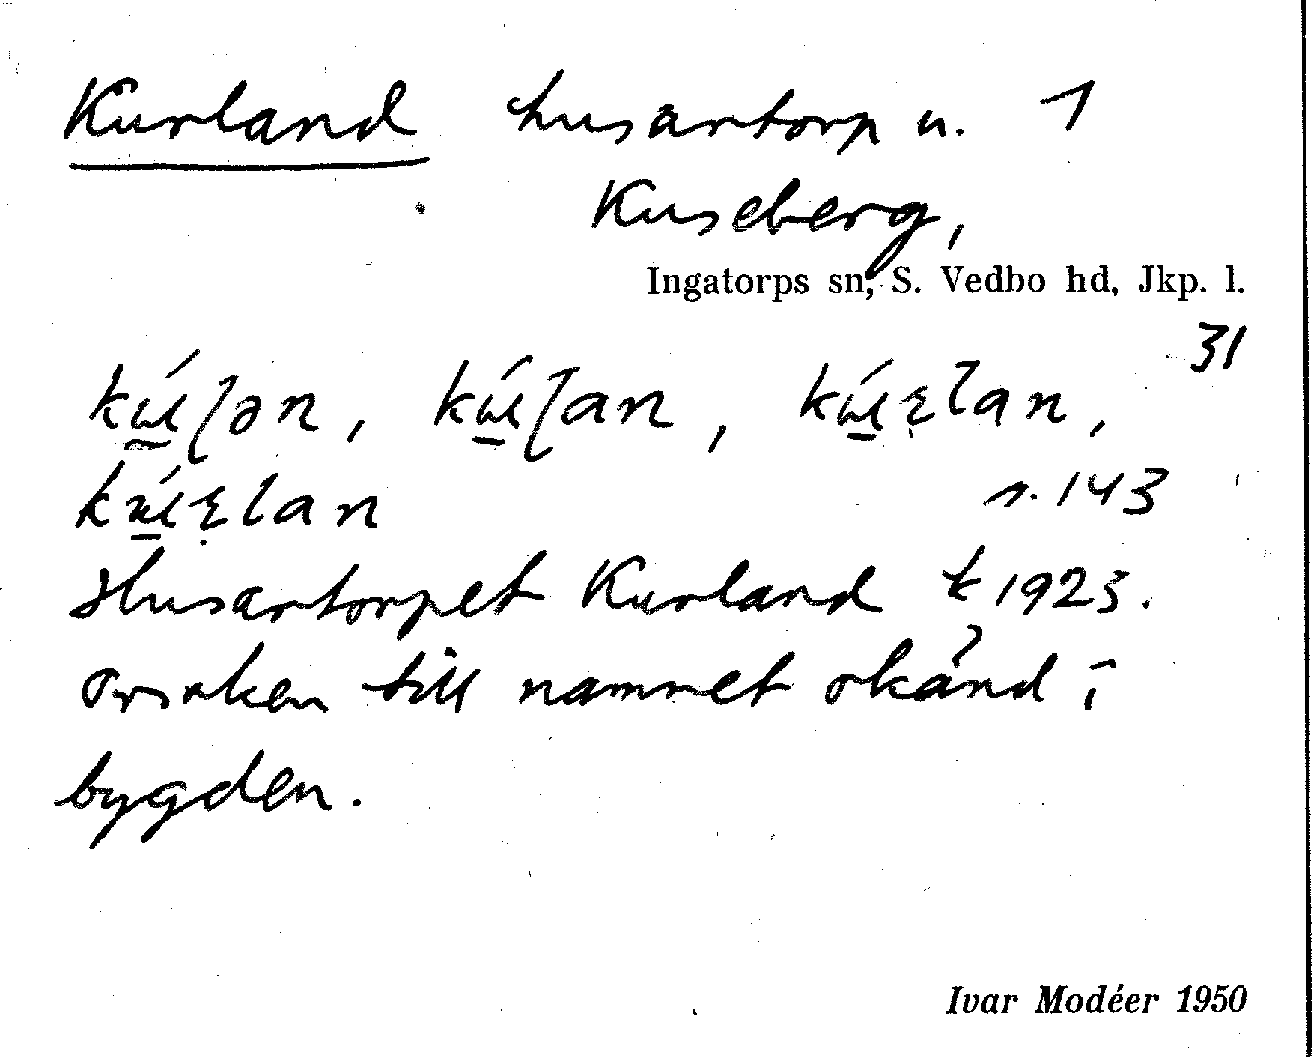 Kurland husartorp u. 1
Kuseberg,
Ingatorps sn, S. Vedbo hd, Jkp. l.
31
s. 143
Husartorpet Kurland k 1923.
Orsaken till namnet okänd i
bygden.
Ivar Modéer 1950